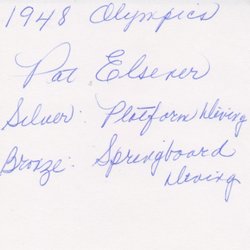 1948 Olympics
Pat Elsener
Silver: Platform Diving
Bronze: Springboard
Diving